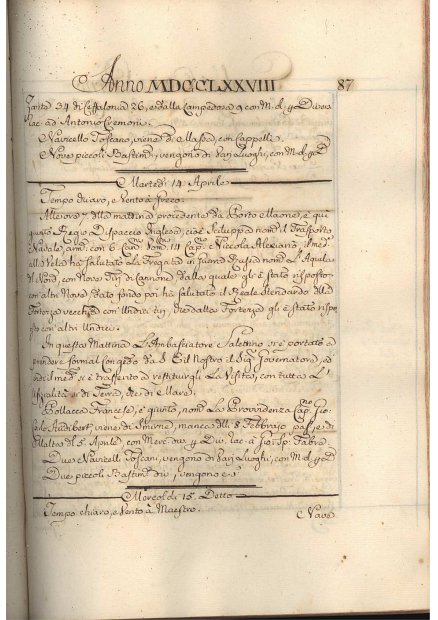 Anno MDCCLXXVIII 87
Zante 34 di Ceffalonia 26, e dalla Campedora 9 con M. d. p Diversi
Rac. ad Antonio Cremoni.
Navicello Toscano, viene di Massa, con Cappelli
Nove piccoli Bastim. vengono di Varj Luoghi, con M. d. p D
Martedi 14 Aprile
Tempo chiaro, e Vento à freco.
All'ora 7. della mattina procedente da Porto Maone, è qui
giunto Regio Dispaccio Inglese, cioè Sciluppa nom. il Trasporto
Navale, arm. con 6 Can. Nom. 14 Cap. Niccola Alexiano, il med.
alla Vela hà Salutato La Fregata in Juned Russa nom. L'Aquila
del Nord, con Nove Tiri di Cannone dalla quale gli è stato risposto
con altri Nove dato fondo poi hà Salutato il Reale Stendardo della
Fortezza vecchia con Undici tiri, e da d.a Fortezza gli è stato rispo
sto con altri Undici.
In questa Mattina L'Ambasciatore Saletino si è portato a
prendere formal Congedo da S. E. il Nostro il Sig. Governatore, ed
indi il med. si è trasferito à restituirgli La Visita, con tutta L'
Ufizialità si di Terra, che di Mare.
Pollacca Francese, è giunto, nom. La Provvidenza Cap. Gio.
Carlo Audibert, viene di Smirne, manca dalli 8 Febbrajo pass. e di
Malta dl 5 Aprile, con Merc. Div. p Div. rac. à Gio. Sp. Fabra.
Due Navicelli Toscani, vengono di Varj Luoghi, con M. d. p D
Due piccoli Bastim. div. vengono c. s.
Mercoldi 15 Detto
Tempo chiaro, e Vento à Maestro.
Nave